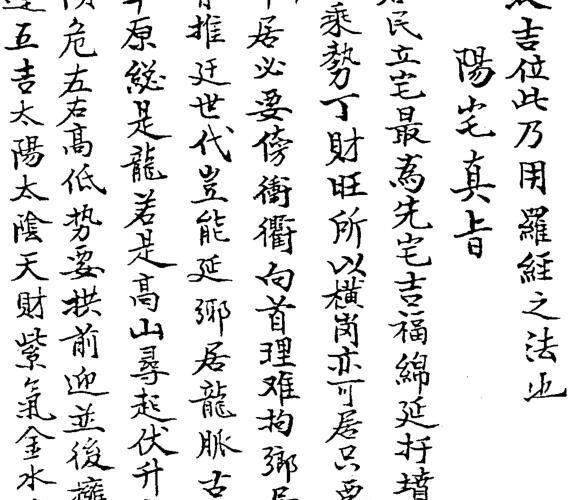 吉位此乃用羅經之法也
陽宅真旨
民立宅最為先宅吉福綿延扞墳
乘勢丁財旺所以橫崗亦可居只要
居必要傍衝衢向首理难拘鄉居
推迁世代岂能延鄉居龍脈古
原総是龍若是高山尋起伏升
危左右高低势要拱前迎並後擁
五吉太陽太陰天財紫氣金水